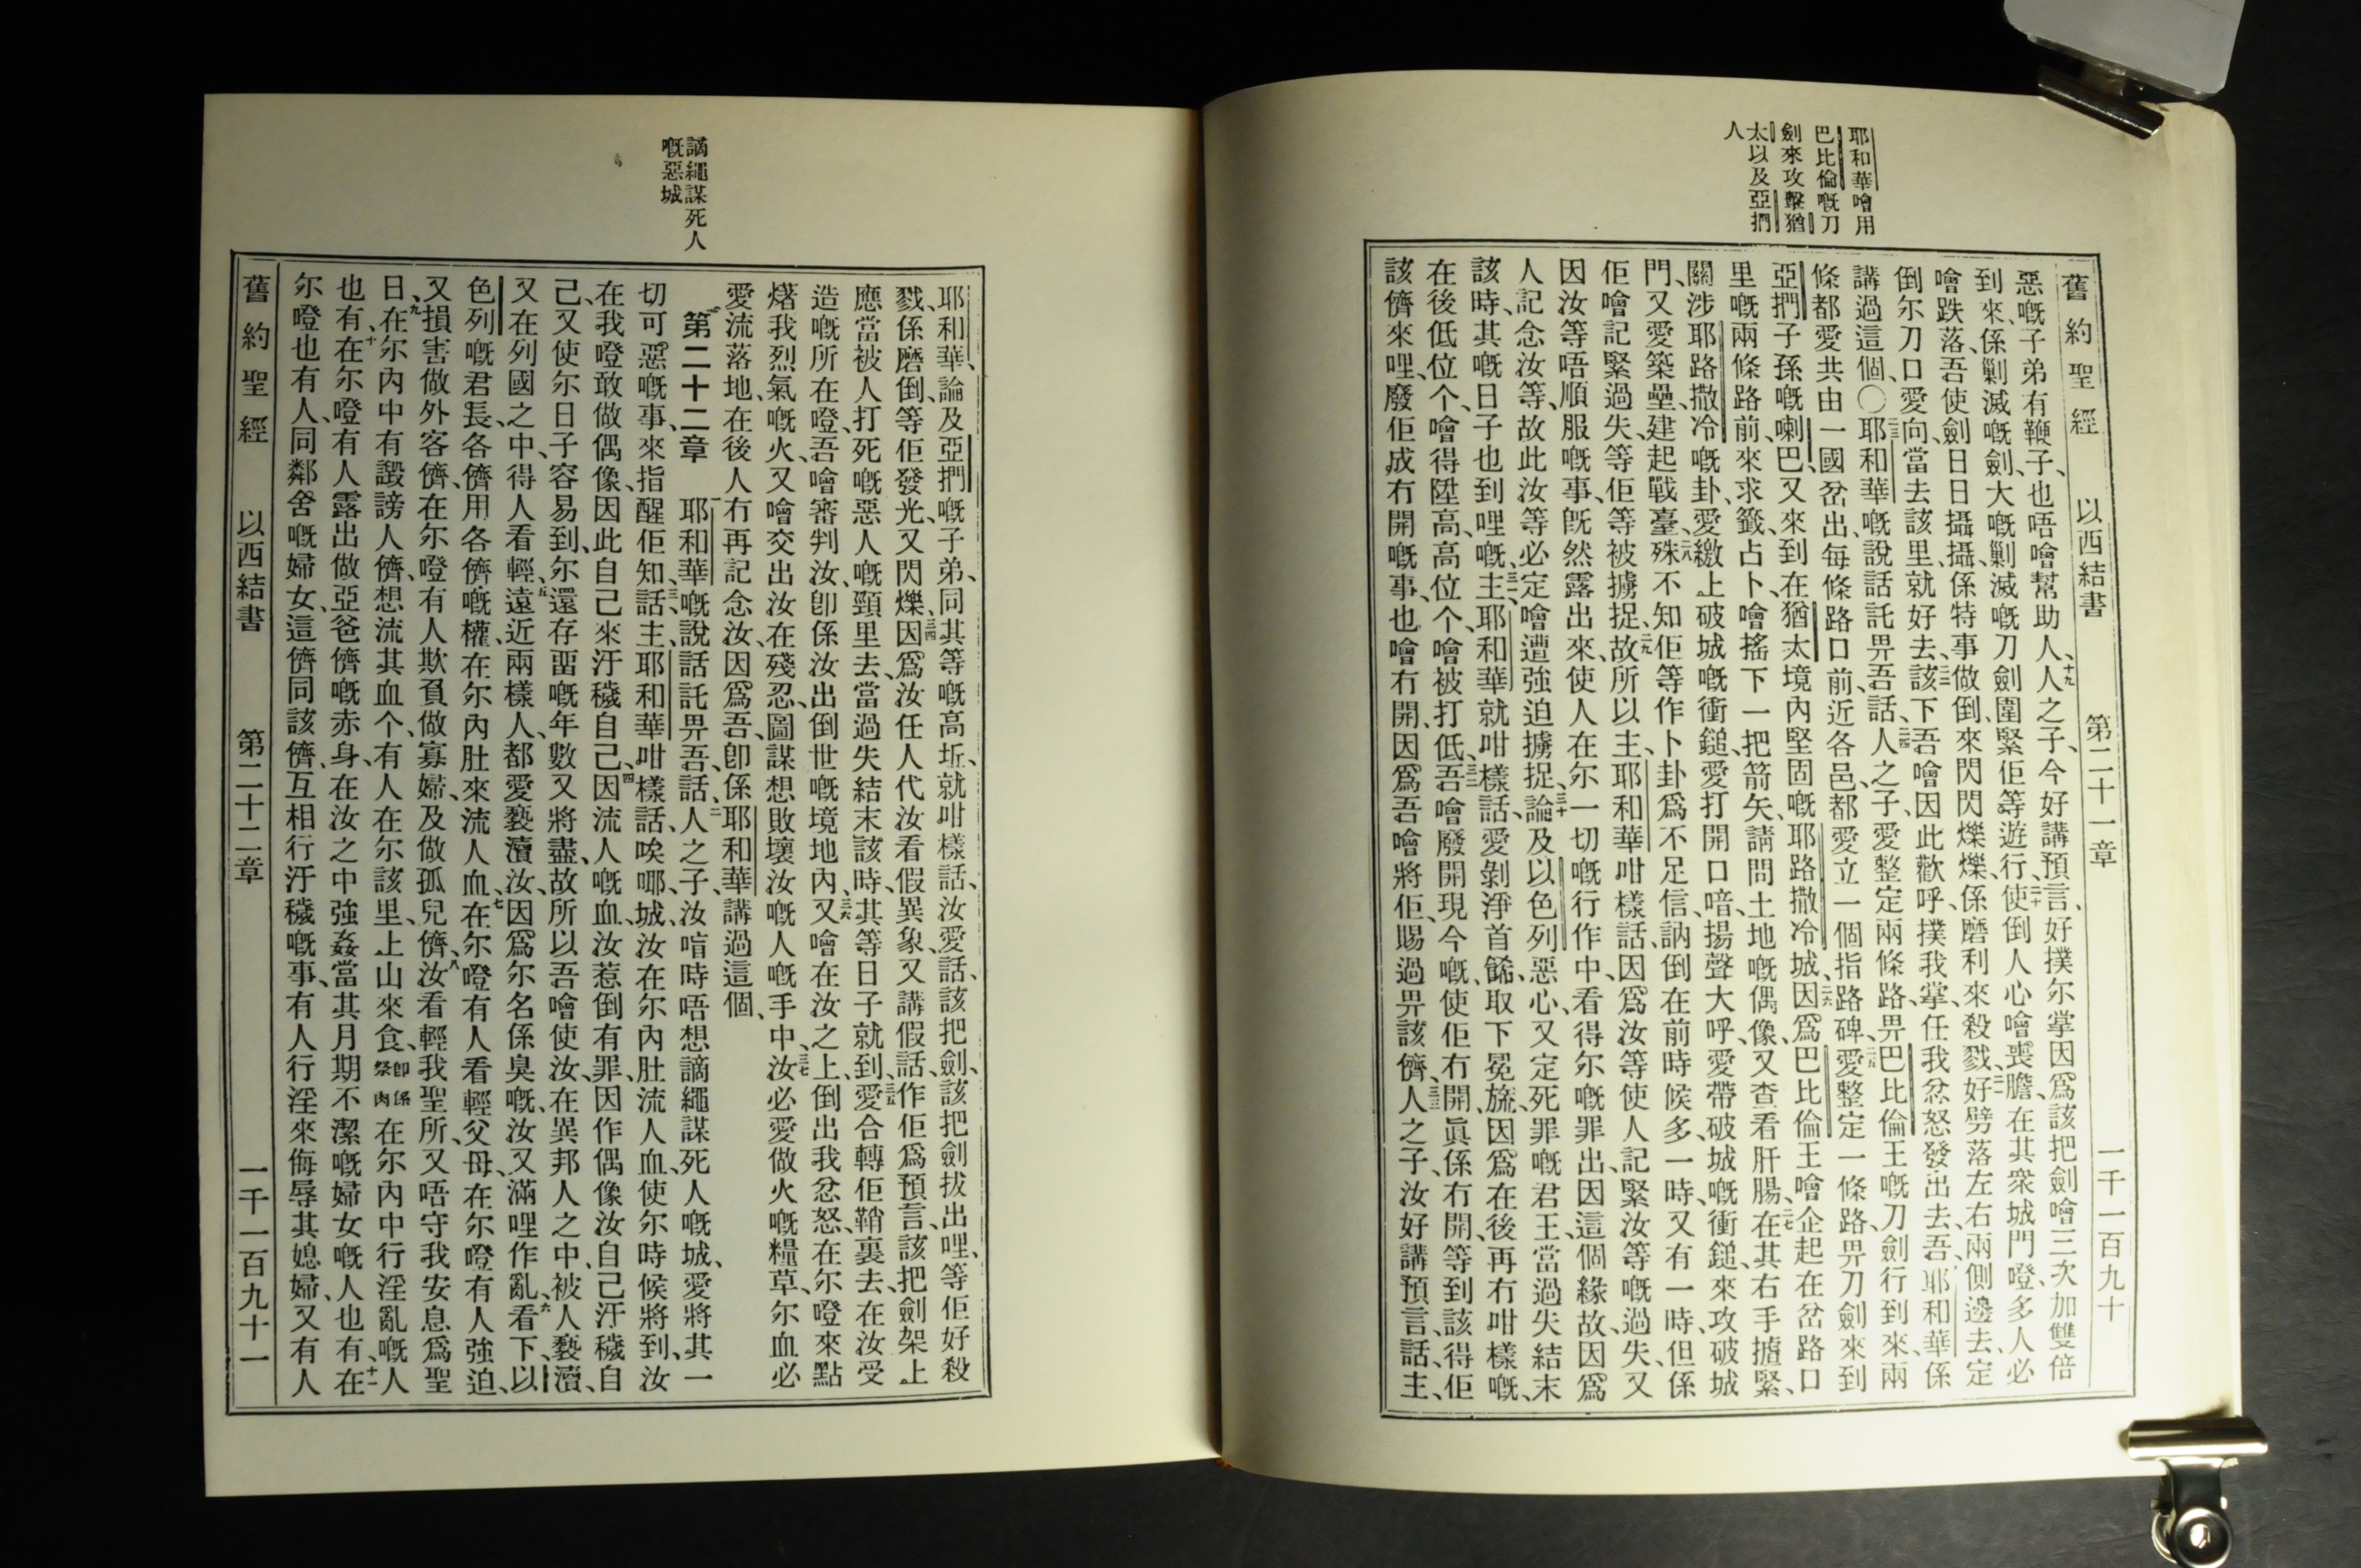 耶和華噲用
巴比倫嘅刀
劍來攻擊猶
太以及亞捫
人
舊約聖經 以西結書 第二十一章 一千一百九十
惡嘅子弟有鞭子、也唔噲幫助人、十九人之子、今好講預言、好撲尓掌因爲該把劍噲三次加雙倍
到來、係剿滅嘅劍、大嘅剿滅嘅刀劍圍緊佢等遊行、二十使倒人心噲喪膽、在其衆城門噔多人必
噲跌落、吾使劍日日攝攝、係特事做倒、來閃閃爍爍、係磨利來殺戮、好劈落左右兩側邊去、定
倒尓刀口愛向、當去該里、就好去該下、吾噲因此歡呼、撲我掌、任我忿怒發出去、吾耶和華係
講過這個、〇耶和華嘅說話託畀吾話、人之子、愛整定兩條路、畀巴比倫王嘅刀劍行到來、兩
條都愛共由一國岔出、每條路口前、近各邑、都愛立一個指路碑、愛整定一條路、畀刀劍來到
亞捫子孫嘅喇巴、又來到在猶太境內堅固嘅耶路撒冷城、二六因爲巴比倫王噲企起在岔路口
里嘅兩條路前、來求籤占卜、噲搖下一把箭矢、請問土地嘅偶像、又查看肝腸、二七在其右手揸緊、
關涉耶路撒冷嘅卦、愛繳上破城嘅衝鎚、愛打開口喑、揚聲大呼、愛帶破城嘅衝鎚、來攻破城
門、又愛築壘、建起戰臺、二八殊不知佢等作卜卦爲不足信、訥倒在前時候多一時、又有一時、但係
佢噲記緊過失、等佢等被擄捉、二九故所以主耶和華咁樣話、因爲汝等使人記緊汝等嘅過失、又
因汝等唔順服嘅事、既然露出來、使人在尓一切嘅行作中、看得尓嘅罪出、因這個緣故、因爲
人記念汝等、故此汝等必定噲遭強迫擄捉、三十論及以色列惡心、又定死罪嘅君王、當過失結末
該時、其嘅日子也到哩嘅、主耶和華就咁樣話、愛剝淨首餙、取下冕旒、因爲在後再冇咁樣嘅、
在後低位个、噲得陞高、高位个、噲被打低、吾噲廢開現今嘅、使佢冇開、眞係冇開、等到該得佢
該儕來哩、廢佢成冇開嘅事、也噲冇開、因爲吾噲將佢、賜過畀該儕、人之子、汝好講預言、話主、
謫繩謀死人
嘅惡城
耶和華、論及亞捫嘅子弟、同其等嘅高坵、就咁樣話、汝愛話、該把劍、該把劍拔出哩、等佢好殺
戮、係磨倒、等佢發光、又閃爍、三四因爲汝任人代汝看假異象、又講假話、作佢爲預言、該把劍架上
應當被人打死嘅惡人嘅頸里去、當過失結末該時、其等日子就到、三五愛合轉佢鞘裏去、在汝受
造嘅所在噔、吾噲審判汝、即係汝出倒世嘅境地內、三六又噲在汝之上倒出我忿怒、在尓噔來點
㷮我烈氣嘅火、又噲交出汝在殘忍、圖謀想敗壞汝嘅人嘅手中、三七汝必愛做火嘅糧草、尓血必
愛流落地、在後人冇再記念汝、因爲吾、即係耶和華講過這個、
第二十二章 一耶和華嘅說話託畀吾話、二人之子、汝唁時唔想謫繩謀死人嘅城、愛將其一
切可惡嘅事、來指醒佢知、三話主耶和華咁樣話、唉哪城、汝在尓內肚流人血、使尓時候將到、汝
在我噔敢做偶像、因此自己來汙穢自己、四因流人嘅血、汝惹倒有罪、因作偶像汝自己汙穢自
己、又使尓日子容易到、尓還存畱嘅年數又將盡、故所以吾噲使汝、在異邦人之中、被人褻瀆、
又在列國之中、得人看輕、五遠近兩樣人、都愛褻瀆汝、因爲尓名係臭嘅、汝又滿哩作亂、六看下、以
色列嘅君長、各儕用各儕嘅權、在尓內肚來流人血、七在尓噔有人看輕父母、在尓噔有人強迫、
又損害做外客儕、在尓噔有人欺負做寡婦、及做孤兒儕、八汝看輕我聖所、又唔守我安息爲聖
日、九在尓內中有譭謗人儕、想流其血个、有人在尓該里、上山來食、即係祭肉在尓內中行淫亂嘅人
也有、十在尓噔有人露出做亞爸儕嘅赤身、在汝之中強姦當其月期不潔嘅婦女嘅人也有、十一在
尓噔也有人、同鄰舍嘅婦女、這儕同該儕、互相行汙穢嘅事、有人行淫來侮辱其媳婦、又有人
舊約聖經 以西結書 第二十二章 一千一百九十一